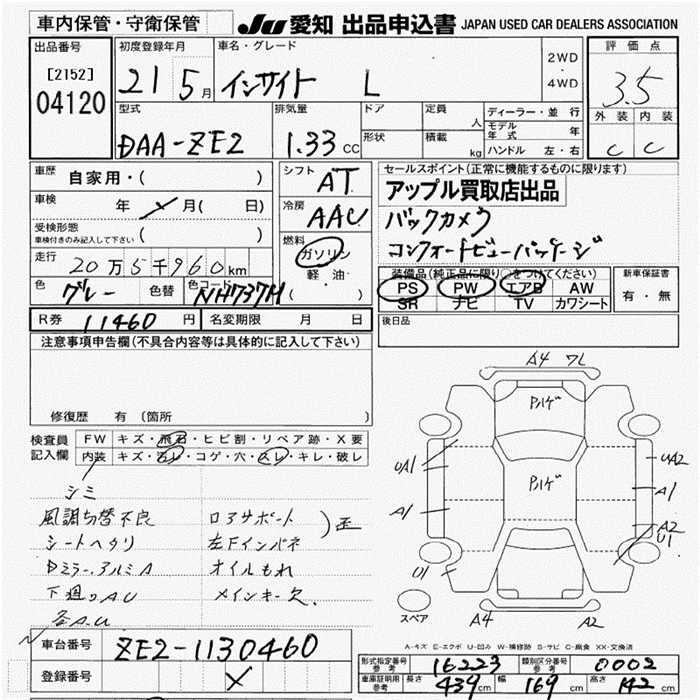 車内保管・守衛保管
JU 愛知 出品申込書 JAPAN USED CAR DEALERS ASSOCIATION
出品番号 [2152] 04120
初度登録年月 21 5月
車名・グレード インサイト L
2WD・4WD
評価点 3.5
外装 内装
C C
型式 DAA-ZE2
排気量 1.33 CC
ドア 定員 人
形状 積載 kg
ディーラー・並行
モデル年式 年
ハンドル 左・右
車歴 自家用・( )
車検 年 月( 日)
受検形態 ( )
車検付きのみ記入して下さい
走行 20万5千960km
色 グレー 色替 色コード NH737M
シフト AT
冷房 AAC
燃料 ガソリン 軽油・( )
セールスポイント(正常に機能するものに限ります)
アップル買取店出品
バックカメラ
コンフォートビューパッケージ
装備品(純正品に限り○をつけてください)
PS PW エアB AW
SR ナビ TV カワシート
新車保証書 有・無
後日品
R券 11460円 名変期限 月 日
注意事項申告欄(不具合内容等は具体的に記入して下さい)
修復歴 有(箇所
検査員記入欄
FW キズ・飛石・ヒビ割・リペア跡・X要
内装 キズ・汚レ・コゲ・穴・スレ・キレ・破レ
シミ
風調切替不良 ロアサポート)歪
シートヘタリ 左下インパネ
Dミラー、アルミA オイルもれ
下廻りAU メインキー欠
各A.U
A4 フL
UA1 UA2
A1 A1
A2
U1 U1
A4 A2
スペア
A-キズ E-エクボ U-凹み W-補修跡 S-サビ C-腐食 XX-交換済
車台番号 ZE2-1130460
登録番号
型式指定番号 参考 16223 類別区分番号 参考 0002
車庫証明用 参考 長さ 439cm 幅 169cm 高さ 142cm